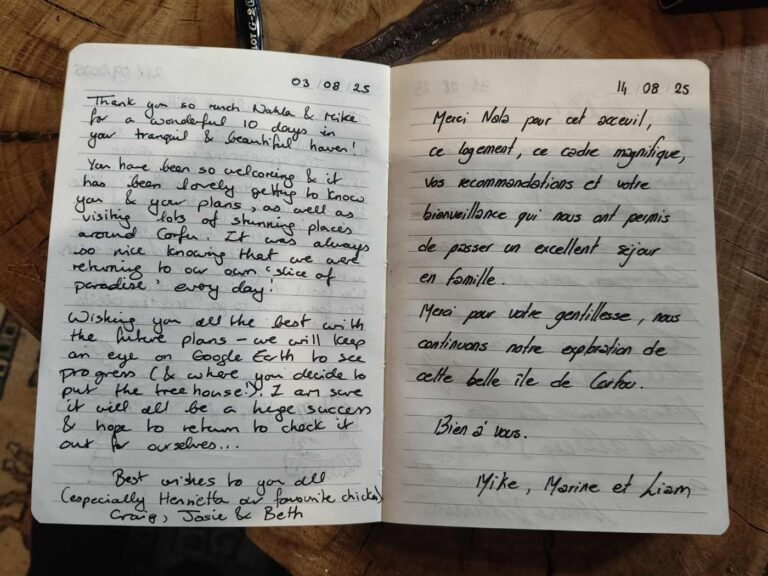 03/08/25
Thank you so much Nahla & Mike
for a wonderful 10 days in
your tranquil & beautiful haven!
You have been so welcoming & it
has been lovely getting to know
you & your plans, as well as
visiting lots of stunning places
around Corfu. It was always
so nice knowing that we were
returning to our own 'slice of
paradise' every day!
Wishing you all the best with
the future plans - we will keep
an eye on Google Earth to see
progress (& where you decide to
put the tree house!). I am sure
it will all be a huge success
& hope to return to check it
out for ourselves...
Best wishes to you all
(especially Henrietta our favourite chicken)
Craig, Josie & Beth
14/08/25
Merci Nala pour cet acceuil,
ce logement, ce cadre magnifique,
vos recommandations et votre
bienveillance qui nous ont permis
de passer un excellent séjour
en famille.
Merci pour votre gentillesse, nous
continuons notre exploration de
cette belle île de Corfou.
Bien à vous.
Mike, Marine et Liam